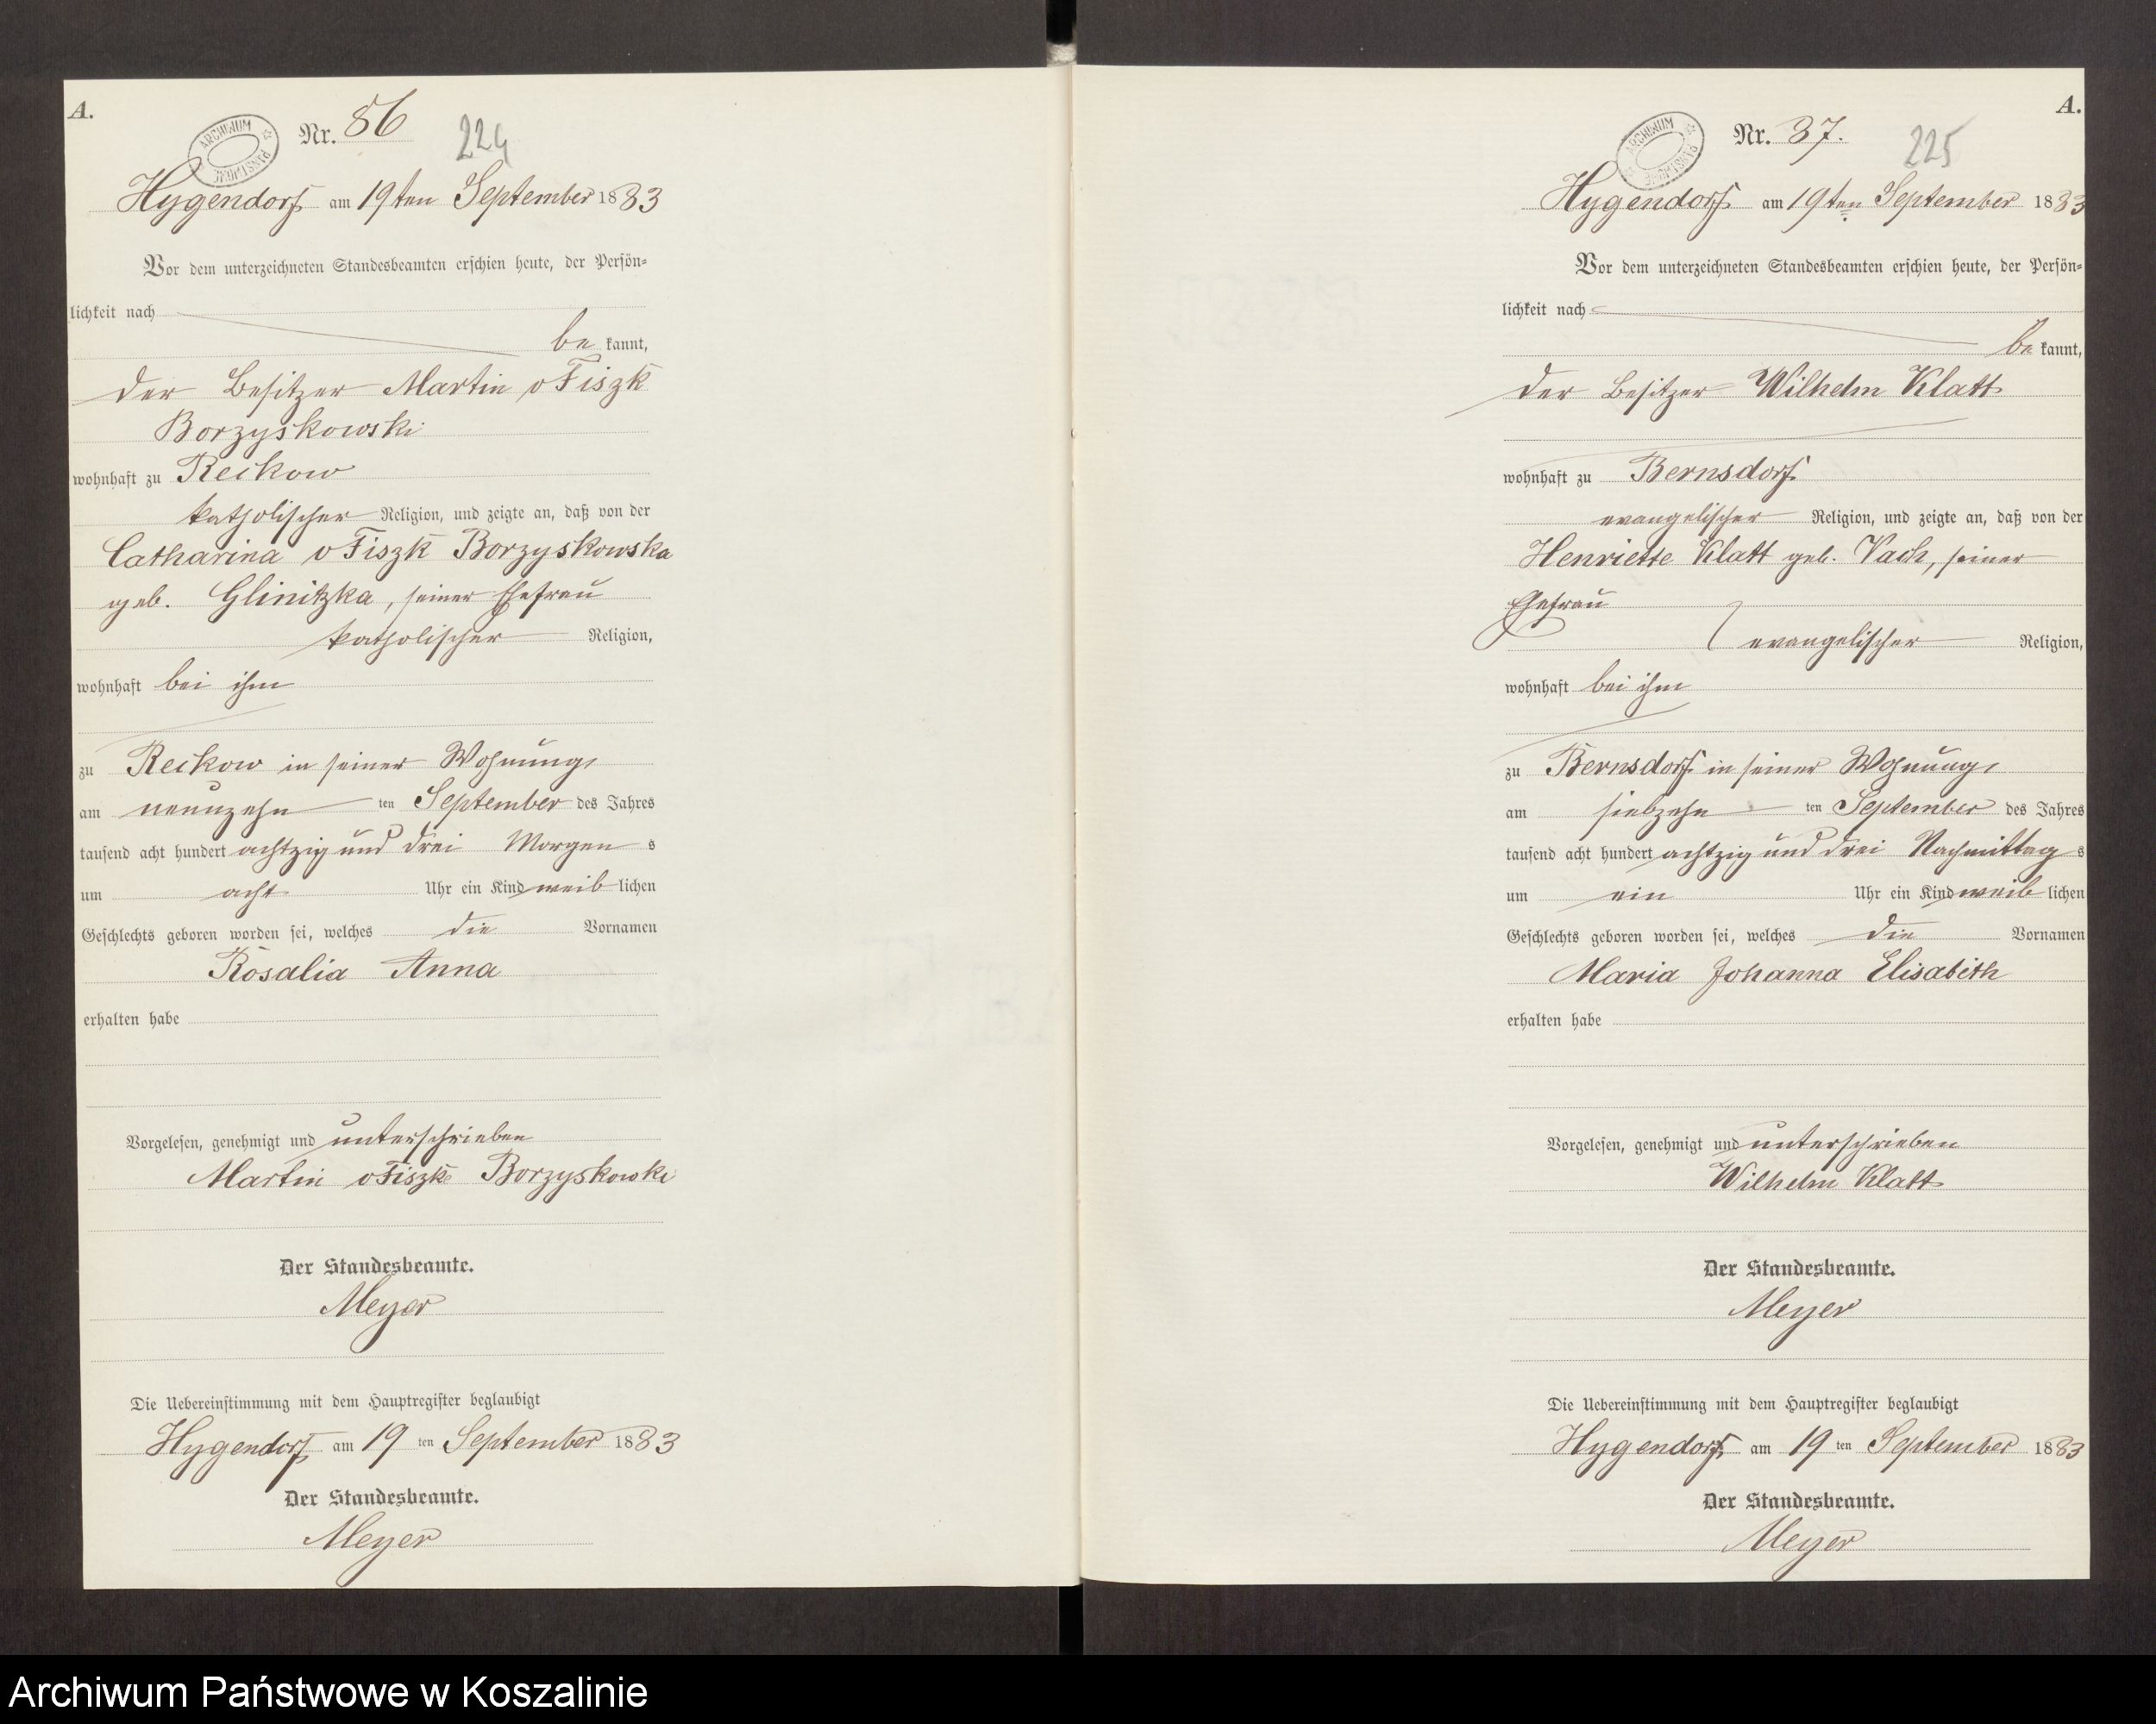 A.
ARCHIWUM PAŃSTWOWE
Nr. 86
224
Hygendorf am 19ten September 1883
Vor dem unterzeichneten Standesbeamten erschien heute, der Persön=
lichkeit nach
be kannt,
der Besitzer Martin v Fiszk
Borzyskowski
wohnhaft zu Reckow
katholischer Religion, und zeigte an, daß von der
Catharina v Fiszk Borzyskowska
geb. Glinitzka, seiner Ehefrau
katholischer Religion,
wohnhaft bei ihm
zu Reckow in seiner Wohnung,
am neunzehn ten September des Jahres
tausend acht hundert achtzig und drei Morgen s
um acht Uhr ein Kind weib lichen
Geschlechts geboren worden sei, welches die Vornamen
Rosalia Anna
erhalten habe
Vorgelesen, genehmigt und unterschrieben
Martin v Fiszk Borzyskowski
Der Standesbeamte.
Meyer
Die Uebereinstimmung mit dem Hauptregister beglaubigt
Hygendorf am 19 ten September 1883
Der Standesbeamte.
Meyer
A.
ARCHIWUM PAŃSTWOWE
Nr. 87.
225
Hygendorf am 19ten September 1883
Vor dem unterzeichneten Standesbeamten erschien heute, der Persön=
lichkeit nach
be kannt,
der Besitzer Wilhelm Klatt
wohnhaft zu Bernsdorf
evangelischer Religion, und zeigte an, daß von der
Henriette Klatt geb. Vach, seiner
Ehefrau
evangelischer Religion,
wohnhaft bei ihm
zu Bernsdorf in seiner Wohnung,
am siebzehn ten September des Jahres
tausend acht hundert achtzig und drei Nachmittag s
um ein Uhr ein Kind weib lichen
Geschlechts geboren worden sei, welches die Vornamen
Maria Johanna Elisabeth
erhalten habe
Vorgelesen, genehmigt und unterschrieben
Wilhelm Klatt
Der Standesbeamte.
Meyer
Die Uebereinstimmung mit dem Hauptregister beglaubigt
Hygendorf am 19 ten September 1883
Der Standesbeamte.
Meyer
Archiwum Państwowe w Koszalinie